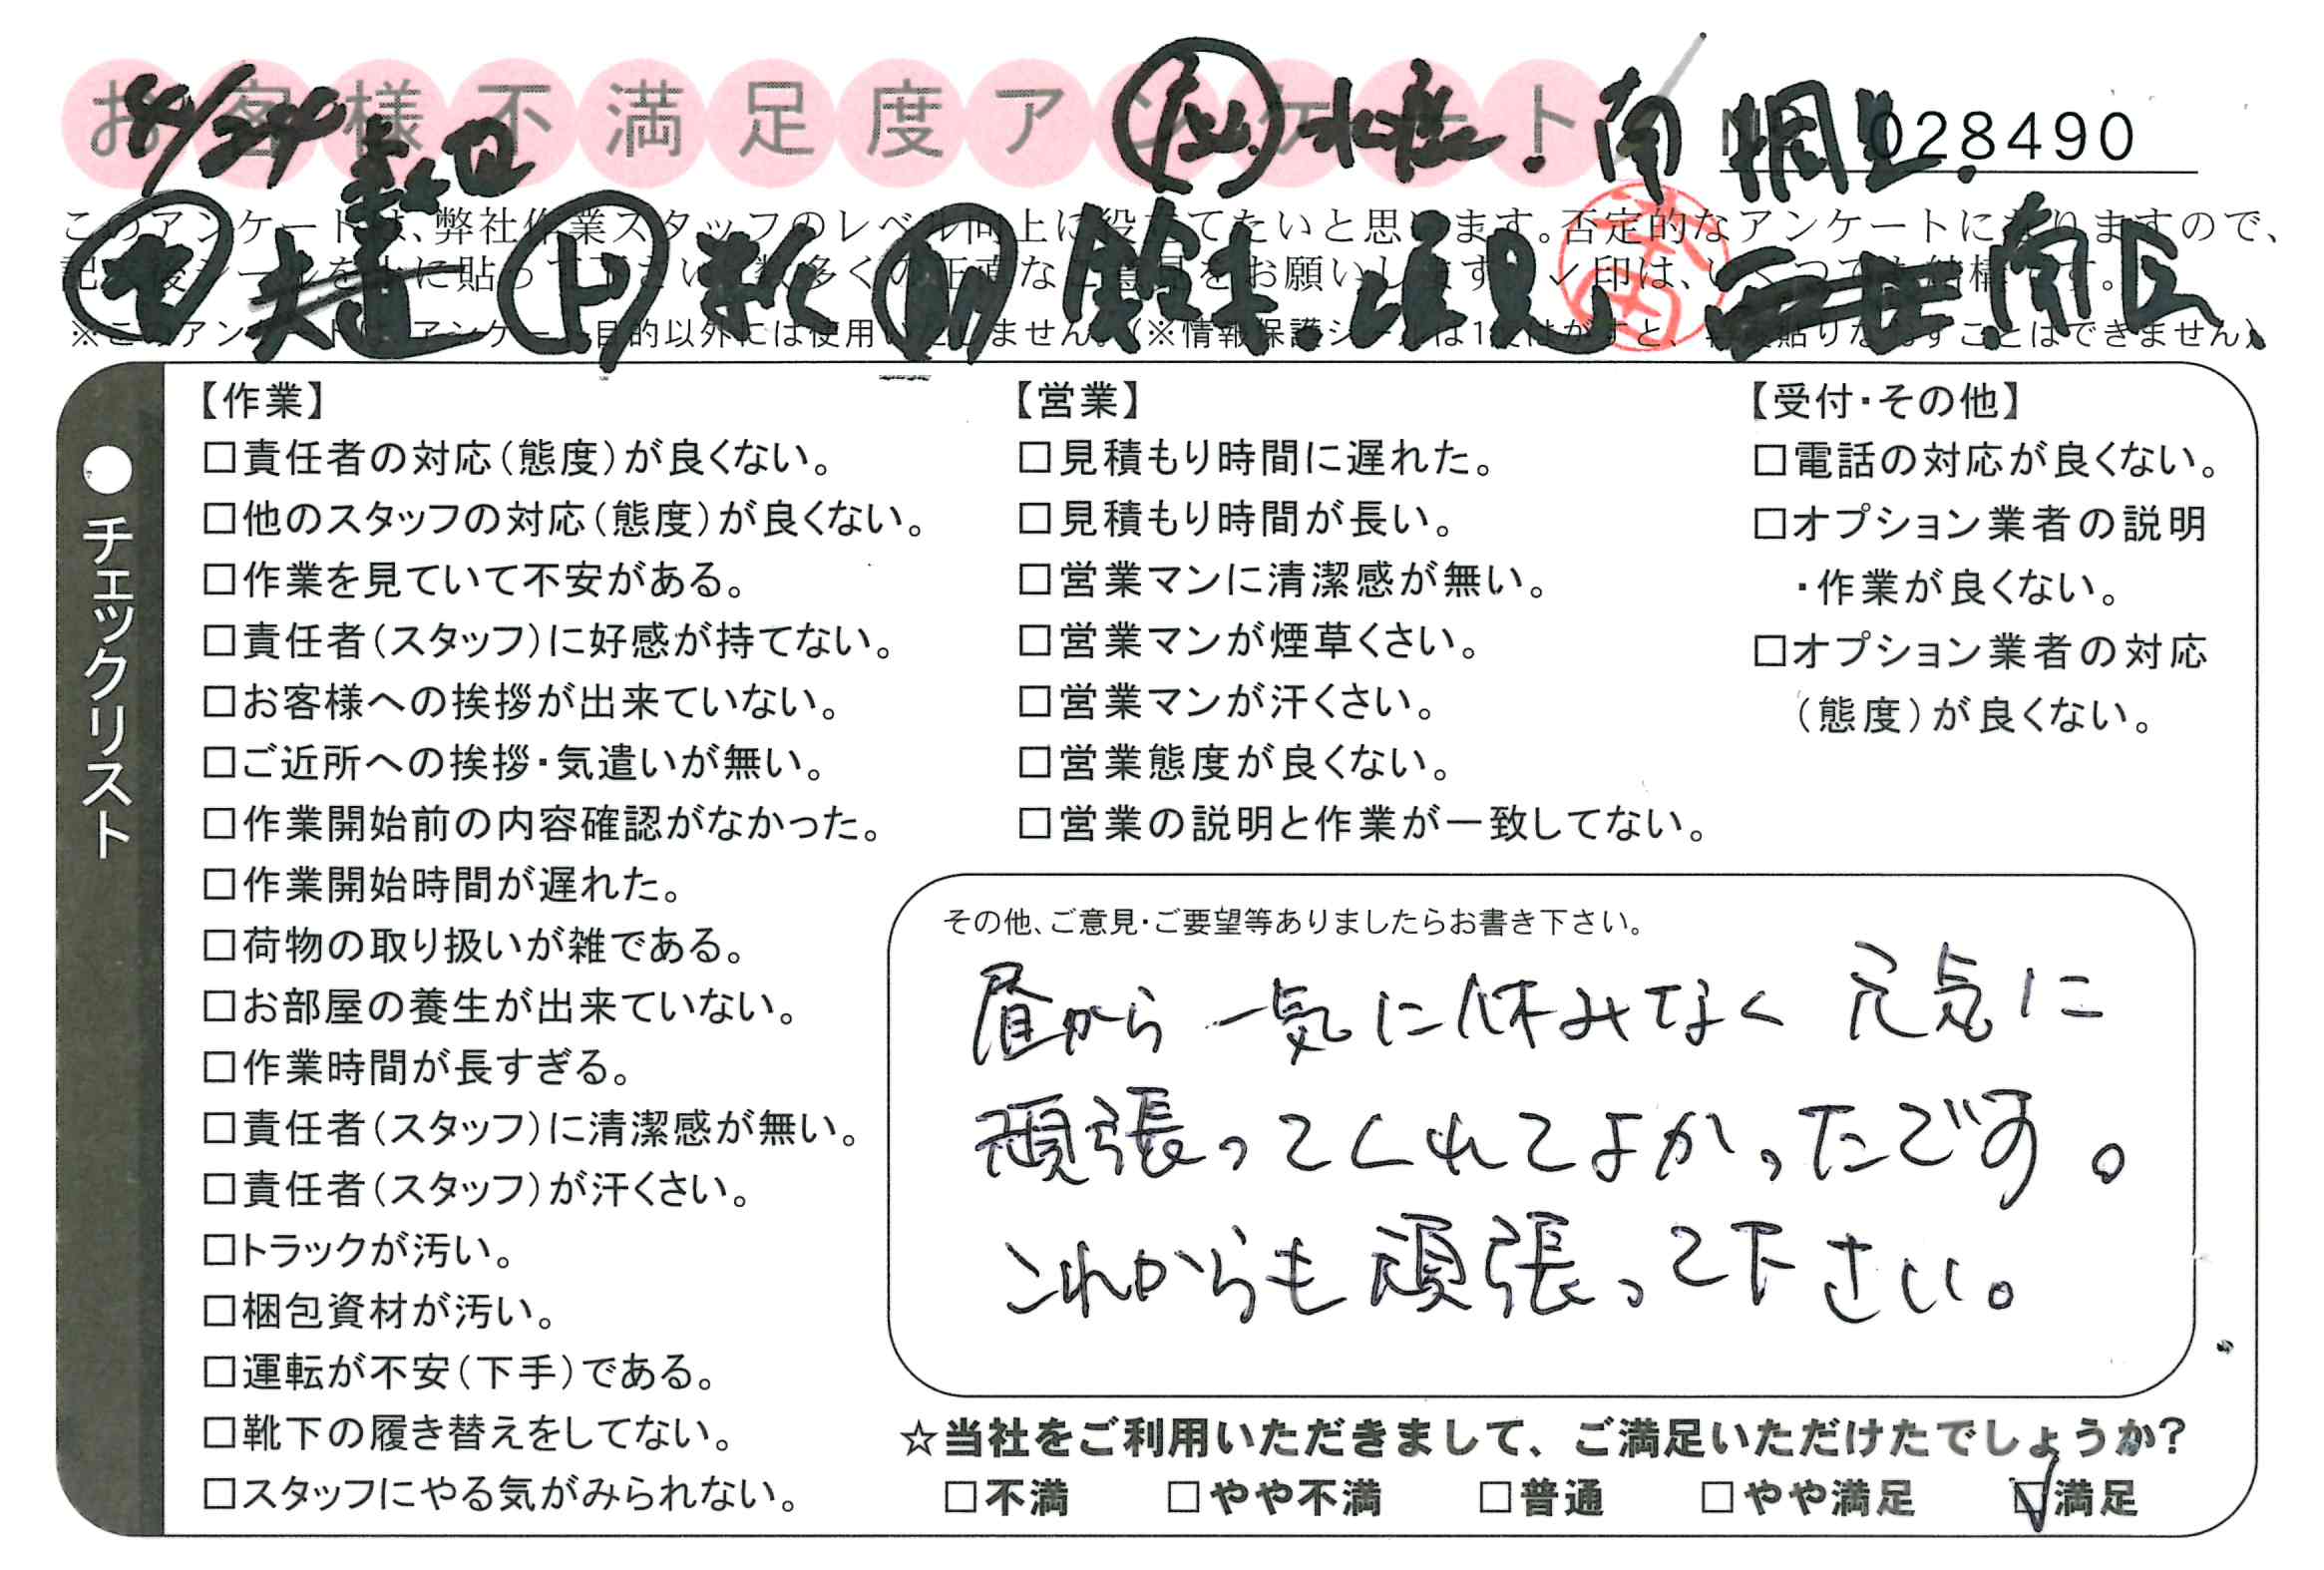 お客様不満足度アンケート
028490
このアンケートは、弊社作業スタッフのレベル向上に役立てたいと思います。否定的なアンケートになりますので、
8/24
鈴木
南
【作業】
□責任者の対応(態度)が良くない。
□他のスタッフの対応(態度)が良くない。
□作業を見ていて不安がある。
□責任者(スタッフ)に好感が持てない。
□お客様への挨拶が出来ていない。
□ご近所への挨拶・気遣いが無い。
□作業開始前の内容確認がなかった。
□作業開始時間が遅れた。
□荷物の取り扱いが雑である。
□お部屋の養生が出来ていない。
□作業時間が長すぎる。
□責任者(スタッフ)に清潔感が無い。
□責任者(スタッフ)が汗くさい。
□トラックが汚い。
□梱包資材が汚い。
□運転が不安(下手)である。
□靴下の履き替えをしてない。
□スタッフにやる気がみられない。
【営業】
□見積もり時間に遅れた。
□見積もり時間が長い。
□営業マンに清潔感が無い。
□営業マンが煙草くさい。
□営業マンが汗くさい。
□営業態度が良くない。
□営業の説明と作業が一致してない。
【受付・その他】
□電話の対応が良くない。
□オプション業者の説明
・作業が良くない。
□オプション業者の対応
(態度)が良くない。
●チェックリスト
その他、ご意見・ご要望等ありましたらお書き下さい。
昼から一気に休みなく元気に
頑張ってくれてよかったです。
これからも頑張って下さい。
☆当社をご利用いただきまして、ご満足いただけたでしょうか?
□不満 □やや不満 □普通 □やや満足 ☑満足